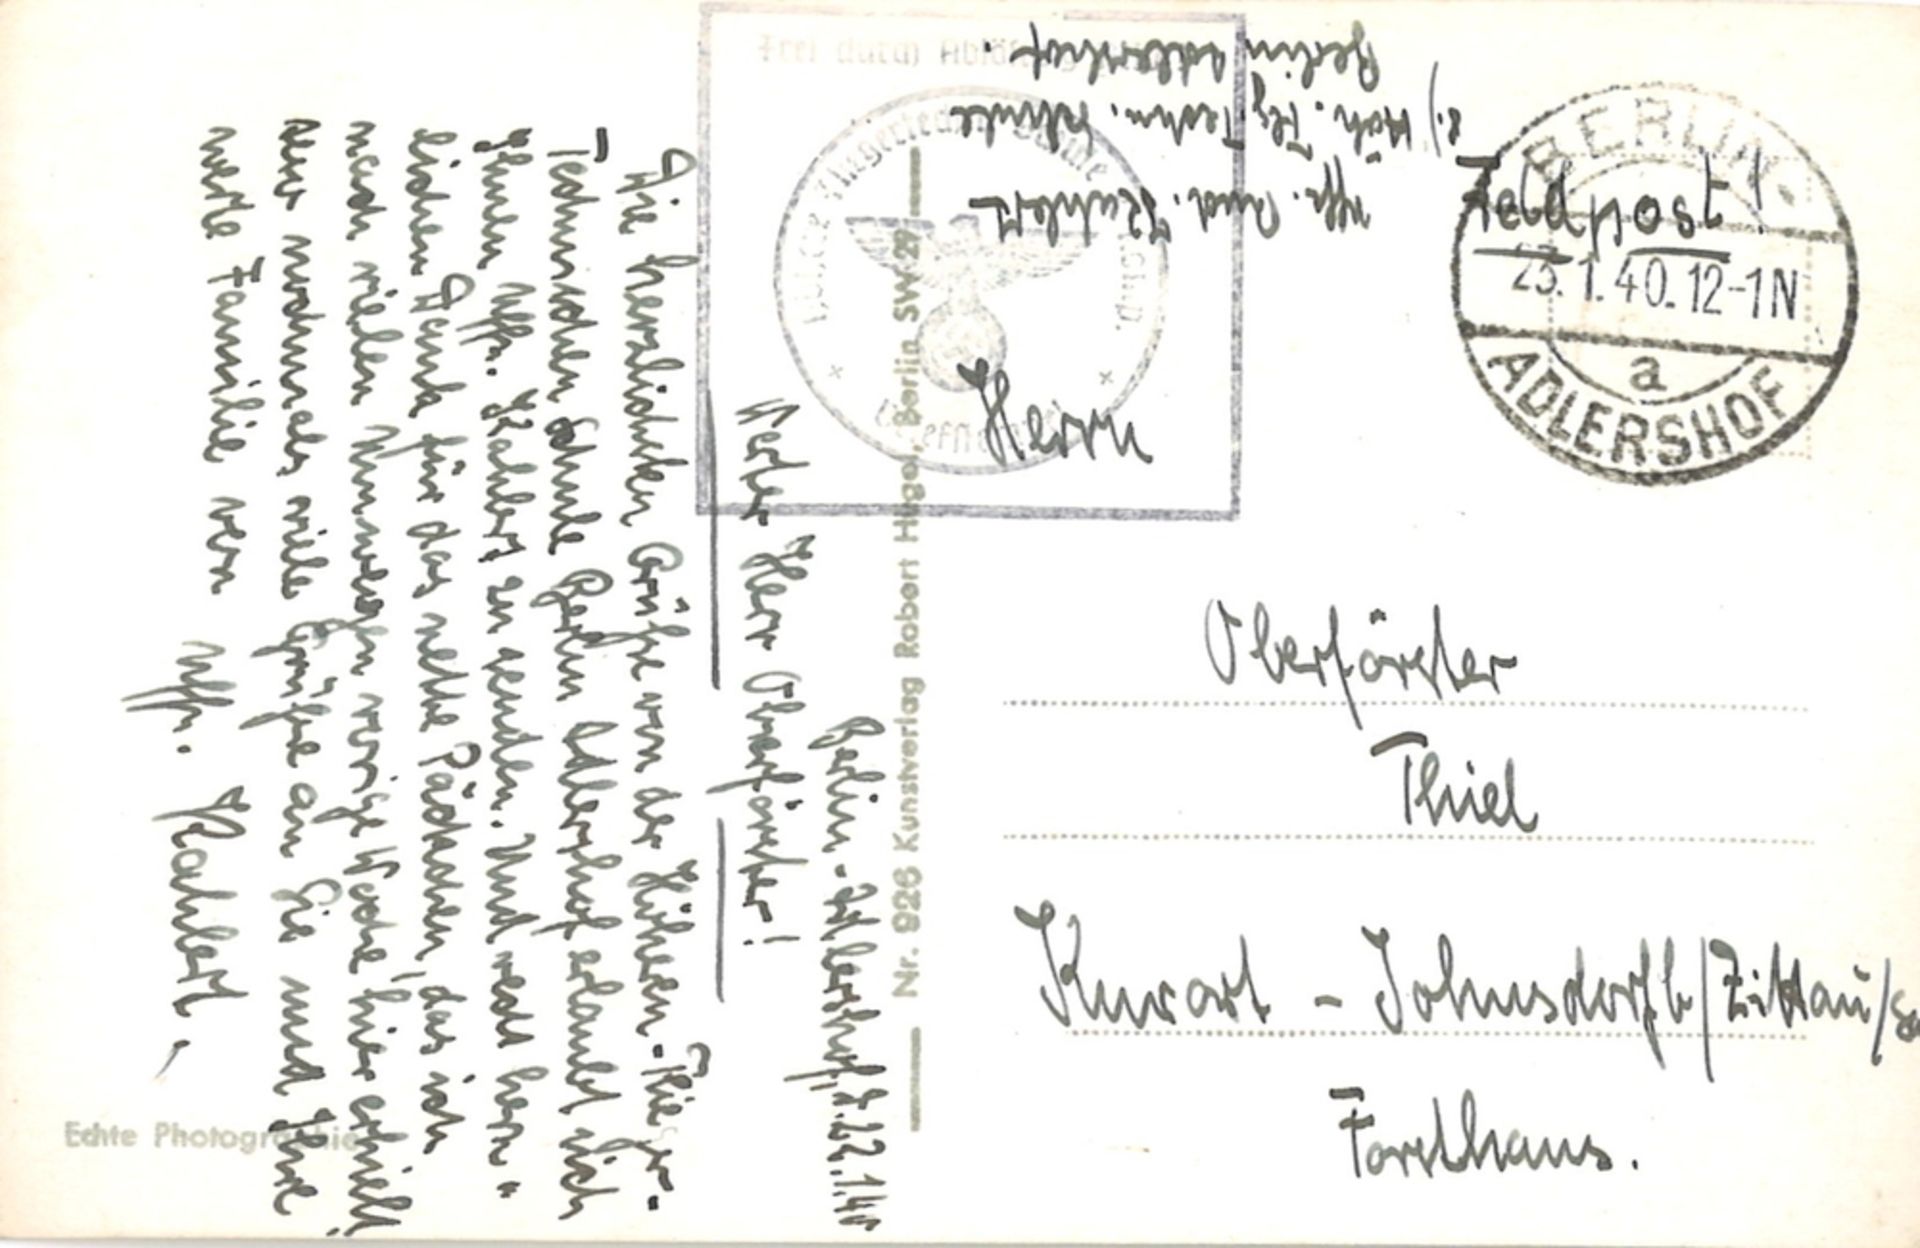 Berlin-Adlershof, d. 22.1.40
Werter Herr Oberförster!
Die herzlichsten Grüße von der Höheren-Flieger-
Technischen Schule Berlin Adlershof erlaubt sich
Ihnen Uffz. Kahlert zu senden. Und recht herz-
lichen Dank für das nette Päckchen, das ich
nach vielen Umwegen vorige Woche hier erhielt.
Nun nochmals viele Grüße an Sie und Ihre
werte Familie von
Uffz. Kahlert.
Echte Photographie
Nr. 926 Kunstverlag Robert Berlin SW 29
Frei durch Ablösung
Höhere Fliegertechnische Schule
Briefstempel
Uffz. Kahlert
Höh. Flg. Techn. Schule
Berlin Adlershof.
Feldpost!
BERLIN-
23.1.40.12-1N
a
ADLERSHOF
Herrn
Oberförster
Thiel
Kurort - Johnsdorf b/Zittau/Sa
Forsthaus.